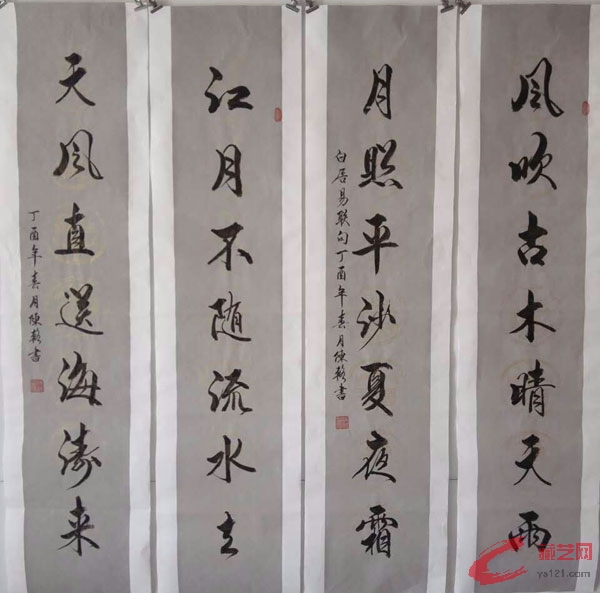 风吹古木晴天雨
月照平沙夏夜霜
白居易联句丁酉年春月陈颖书
江月不随流水去
天风直送海涛来
丁酉年春月陈颖书
藏艺网
ys121.com